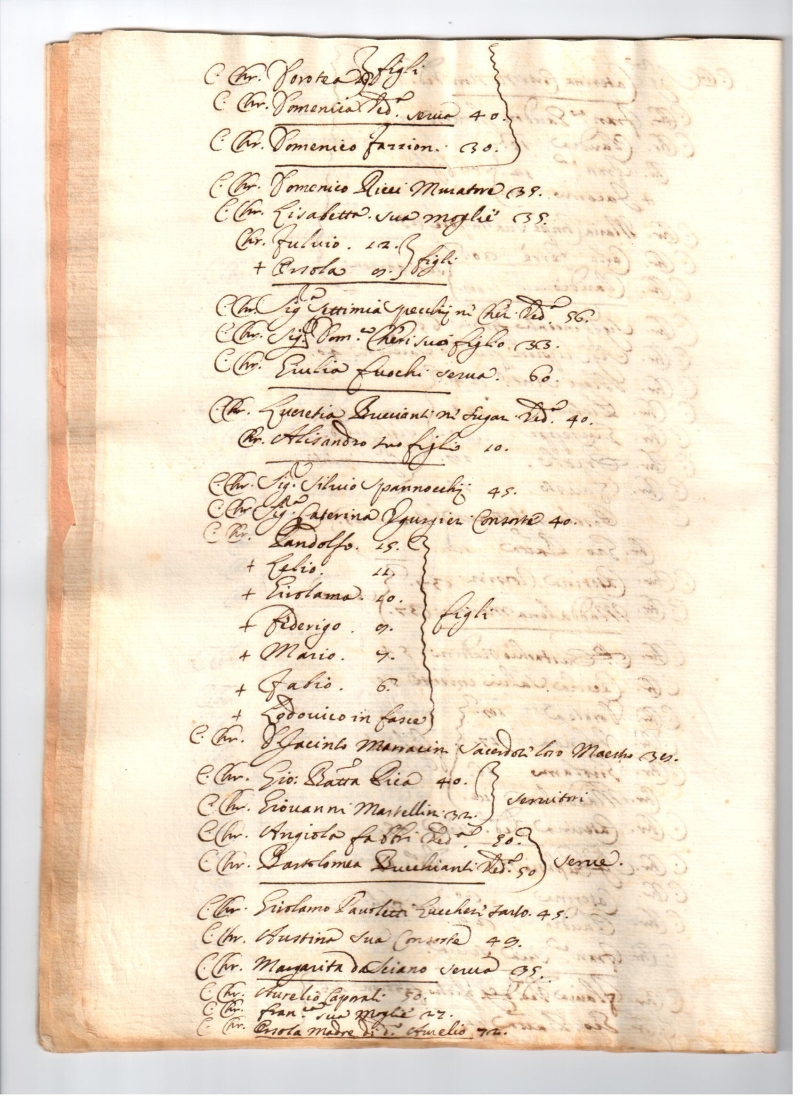 C. Chr. Dorotea figli
C. Chr. Domenica Ved.ª serva 40.
C. Chr. Domenico Fazzion. 30.
C. Chr. Domenico Ricci Muratore 35.
C. Chr. Lisabetta sua moglie 35.
Chr. Fulvio. 12.
+ Orsola 9. figli
C. Chr. Sig.ª Settimia Specchi ni Cheri Ved.ª 56.
C. Chr. Sig. Dom.co Cheri suo figlio 33.
C. Chr. Giulia Fuochi serva. 60.
C. Chr. Lucretia Buccianti ni Sugar. Ved.ª 40.
Chr. Alisandro suo figlio 10.
C. Chr. Sig. Silvio Spannocchi 45.
C. Chr. Sig.ª Caterina Consorte 40.
C. Chr. Pandolfo. 15.
+ Lelio. 11.
+ Girolama. 10.
+ Federigo. 9. figli
+ Mario. 7.
+ Fabio. 6.
+ Lodovico in fasce
C. Chr. D. Jacinto Marracin Sacerdote loro Maestro 39.
C. Chr. Gio: Batta Pica 40.
C. Chr. Giovanni Martellin 32. servitori
C. Chr. Angiola Fabbri Ved.ª 50.
C. Chr. Bartolomea Bucchianti Ved.ª 50 serve.
C. Chr. Girolamo Pauoletti Luccheri sarto. 45.
C. Chr. Austina sua Consorte 49.
C. Chr. Margarita da Sciano serva 35.
C. Chr. Aurelio Caporali 50.
C. Chr. Fran.ca sua moglie 27.
C. Chr. Orsola Madre di d.º Aurelio 72.